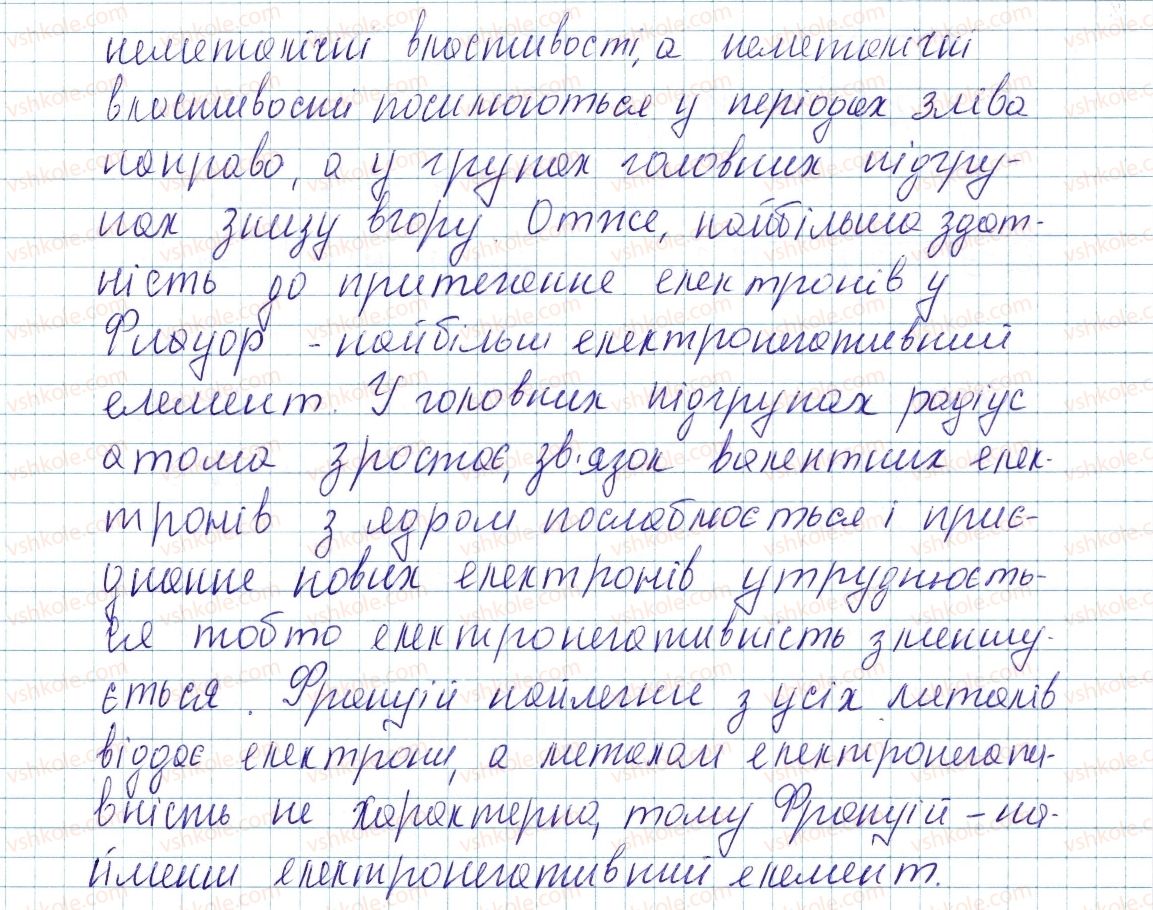 неметалічні властивості, а неметалічні
властивості посилюються у періодах зліва
направо, а у групах головних підгру-
пах знизу вгору. Отже, найбільша здат-
ність до притягання електронів у
Флауор - найбільш електронегативний
елемент. У головних підгрупах радіус
атома зростає, зв'язок валентних елек-
тронів з ядром послаблюється і приє-
днання нових електронів утруднюєть-
ся тобто електронегативність зменшу-
ється. Францій найлегше з усіх металів
віддає електрони, а металам електронегати-
вність не характерна, тому Францій - на-
йменш електронегативний елемент.